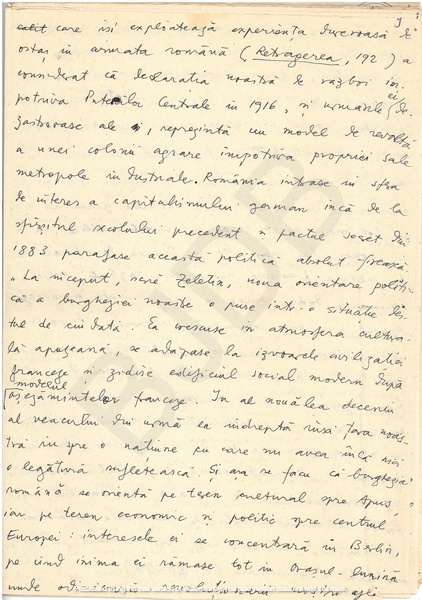 3
care își exploatează experiența dureroasă de
ostaș în armata română (Retragerea, 192 ) a
considerat că declarația noastră de război îm-
potriva Puterilor Centrale în 1916, și urmările ei de-
zastroase ale ei, reprezintă un model de revoltă
a unei colonii agrare împotriva propriei sale
metropole industriale. România intrase în sfera
de interes a capitalismului german încă de la
sfîrșitul secolului precedent și pactul secret din
1883 parafase această politică absolut firească.
„La început, scrie Zeletin, noua orientare politi-
că a burgheziei noastre o puse într-o situație des-
tul de ciudată. Ea crescuse în atmosfera cultura-
lă apuseană, se adăpase la izvoarele civilizației
franceze și zidise edificiul social modern după
modelul
așezămintelor franceze. În al nouălea deceniu
al veacului din urmă ea îndreptă însă țara noas-
tră înspre o națiune cu care nu avea încă nici
o legătură sufletească. Și așa se făcu că burghezia
română se orientă pe teren cultural spre Apus,
iar pe teren economic și politic spre centrul
Europei: interesele ei se concentrară în Berlin,
pe cînd inima ei rămase tot în Orașul-lumină
unde